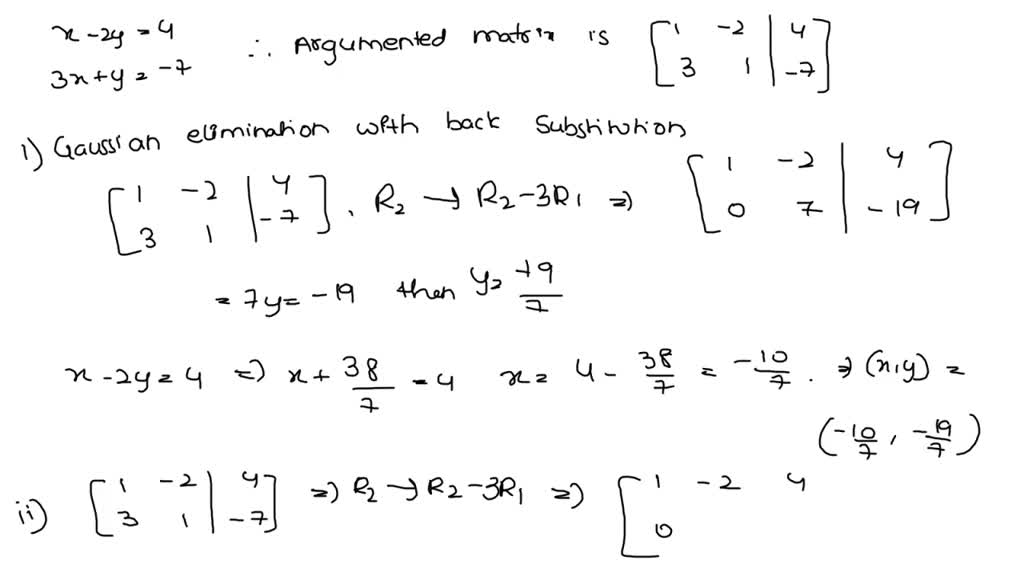 x - 2y = 4
3x + y = -7
∴ Argumented matrix is [1 -2 | 4
3 1 | -7]
i) Gaussian elimination with back Substitution
[1 -2 | 4
3 1 | -7] . R2 → R2 - 3R1 ⇒ [1 -2 | 4
0 7 | -19]
= 7y = -19 then y = -19/7
x - 2y = 4 ⇒ x + 38/7 = 4 x = 4 - 38/7 = -10/7 . ⇒ (x, y) =
(-10/7, -19/7)
ii) [1 -2 | 4
3 1 | -7] ⇒ R2 → R2 - 3R1 ⇒ [1 -2 4
0